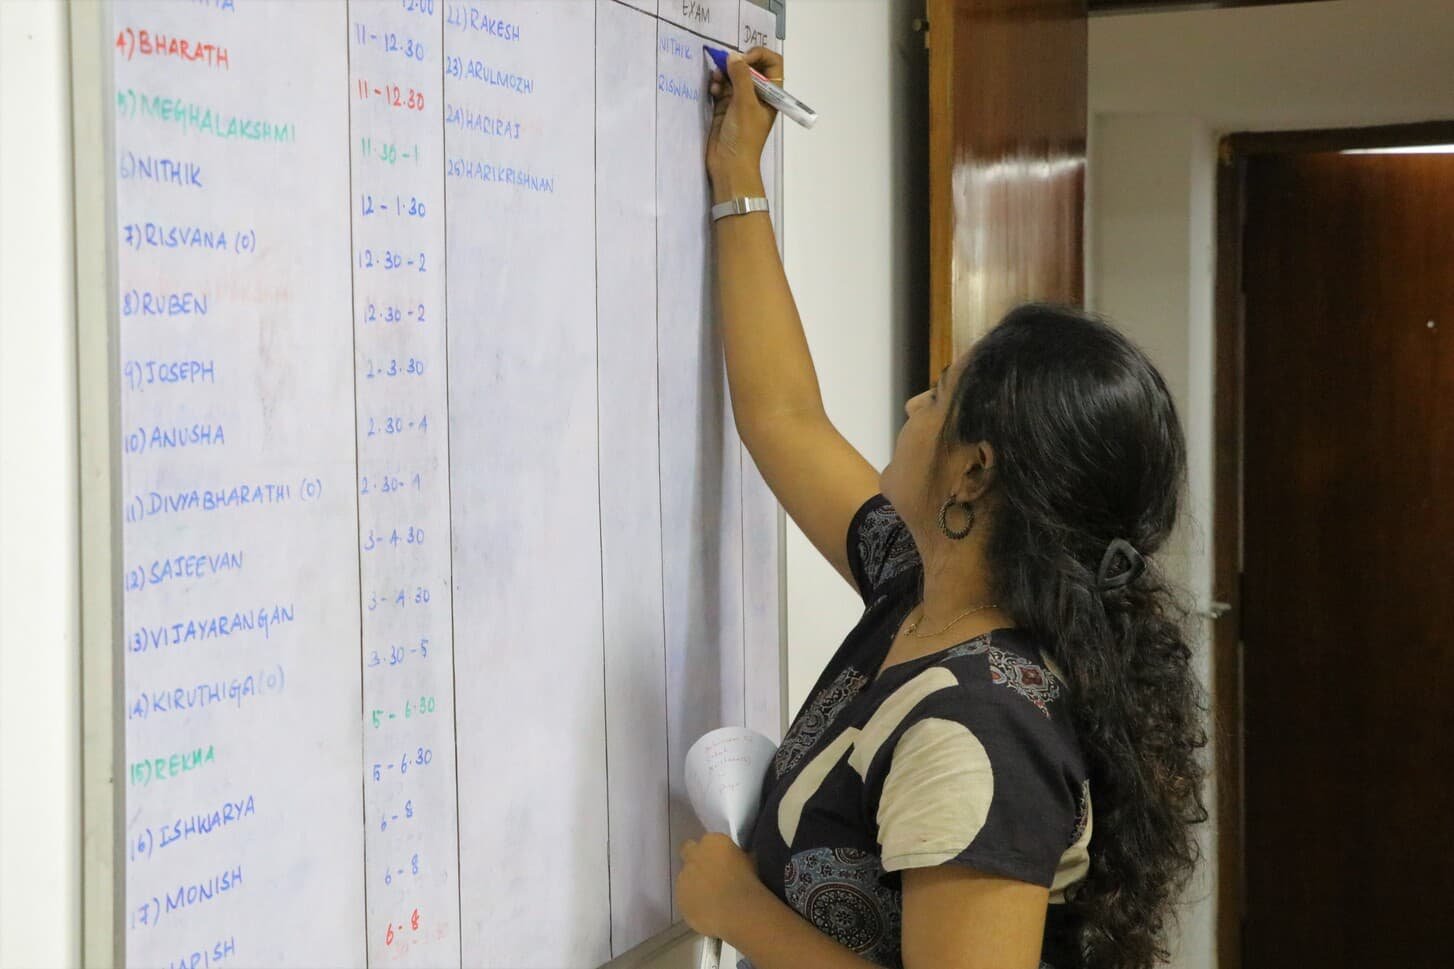 12.00
4) BHARATH
11 - 12.30
5) MEGHALAKSHMI
11 - 12.30
6) NITHIK
11.30 - 1
7) RISVANA (O)
12 - 1.30
8) RUBEN
12.30 - 2
9) JOSEPH
12.30 - 2
10) ANUSHA
2 - 3.30
11) DIVYABHARATHI (O)
2.30 - 4
12) SAJEEVAN
2.30 - 4
13) VIJAYARANGAN
3 - 4.30
14) KIRUTHIGA (O)
3 - 4.30
15) REKHA
3.30 - 5
16) ISHWARYA
5 - 6.30
17) MONISH
5 - 6.30
6 - 8
6 - 8
6 - 8
22) RAKESH
23) ARULMOZHI
24) HARIRAJ
25) HARIKRISHNAN
EXAM
DATE
NITHIK
RISWANA